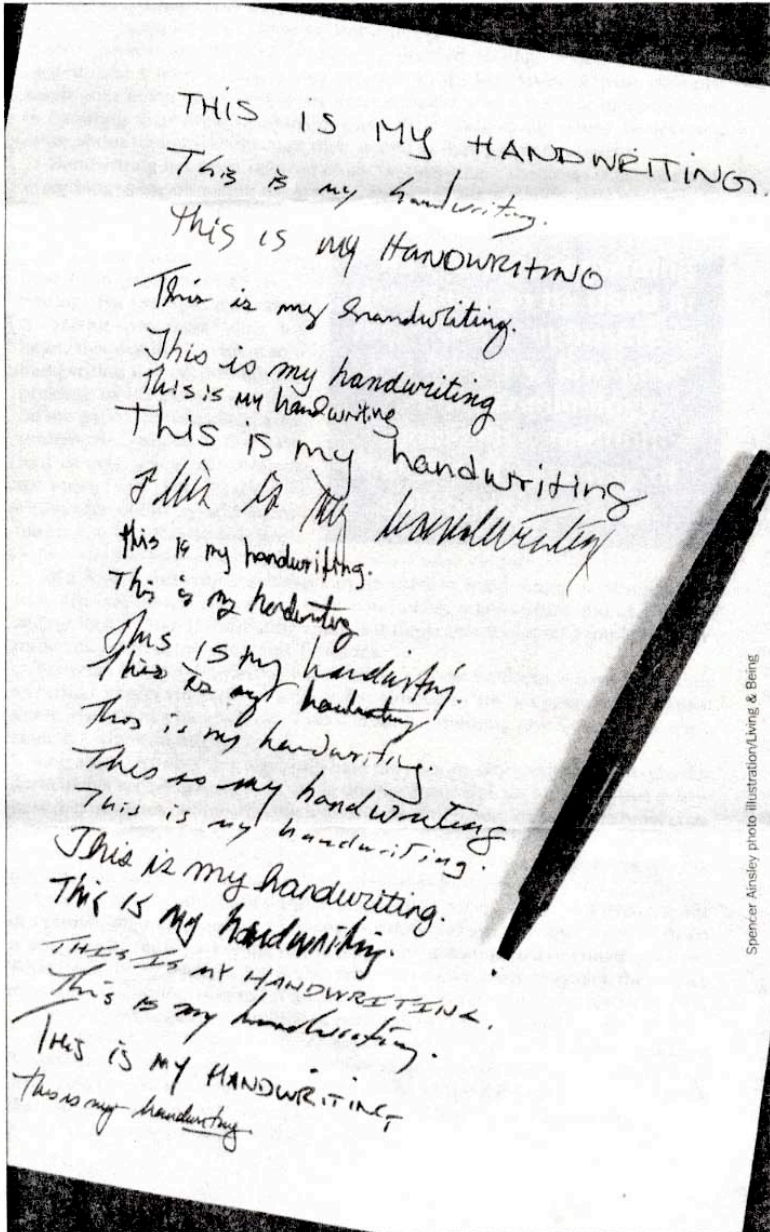 THIS IS MY HANDWRITING.
This is my handwriting.
this is my HANDWRITING
This is my handwriting.
This is my handwriting
This is my handwriting
This is my handwriting
This is my handwriting
this is my handwriting.
This is my handwriting
This is my handwriting.
This is my handwriting
This is my handwriting.
This is my handwriting
This is my handwriting.
This is my handwriting.
This is my handwriting.
THIS IS MY HANDWRITING.
This is my handwriting.
THIS IS MY HANDWRITING
This is my handwriting.
Spencer Ainsley photo illustration/Living & Being